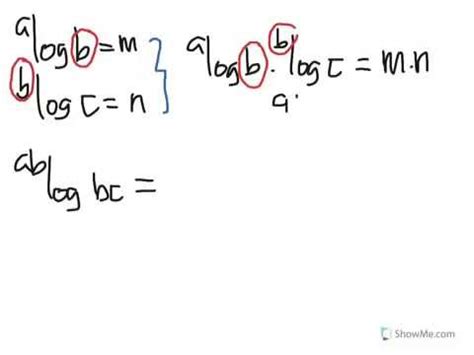 ᵃlog b = m
ᵇlog c = n
ᵃlog b · ᵇlog c = m.n
a.
ᵃᵇlog bc =
ShowMe.com